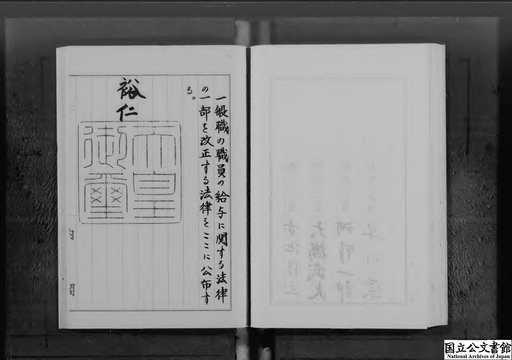 一般職の職員の給与に関する法律
の一部を改正する法律をここに公布す
る。
裕仁
天皇
御璽
国立公文書館
National Archives of Japan